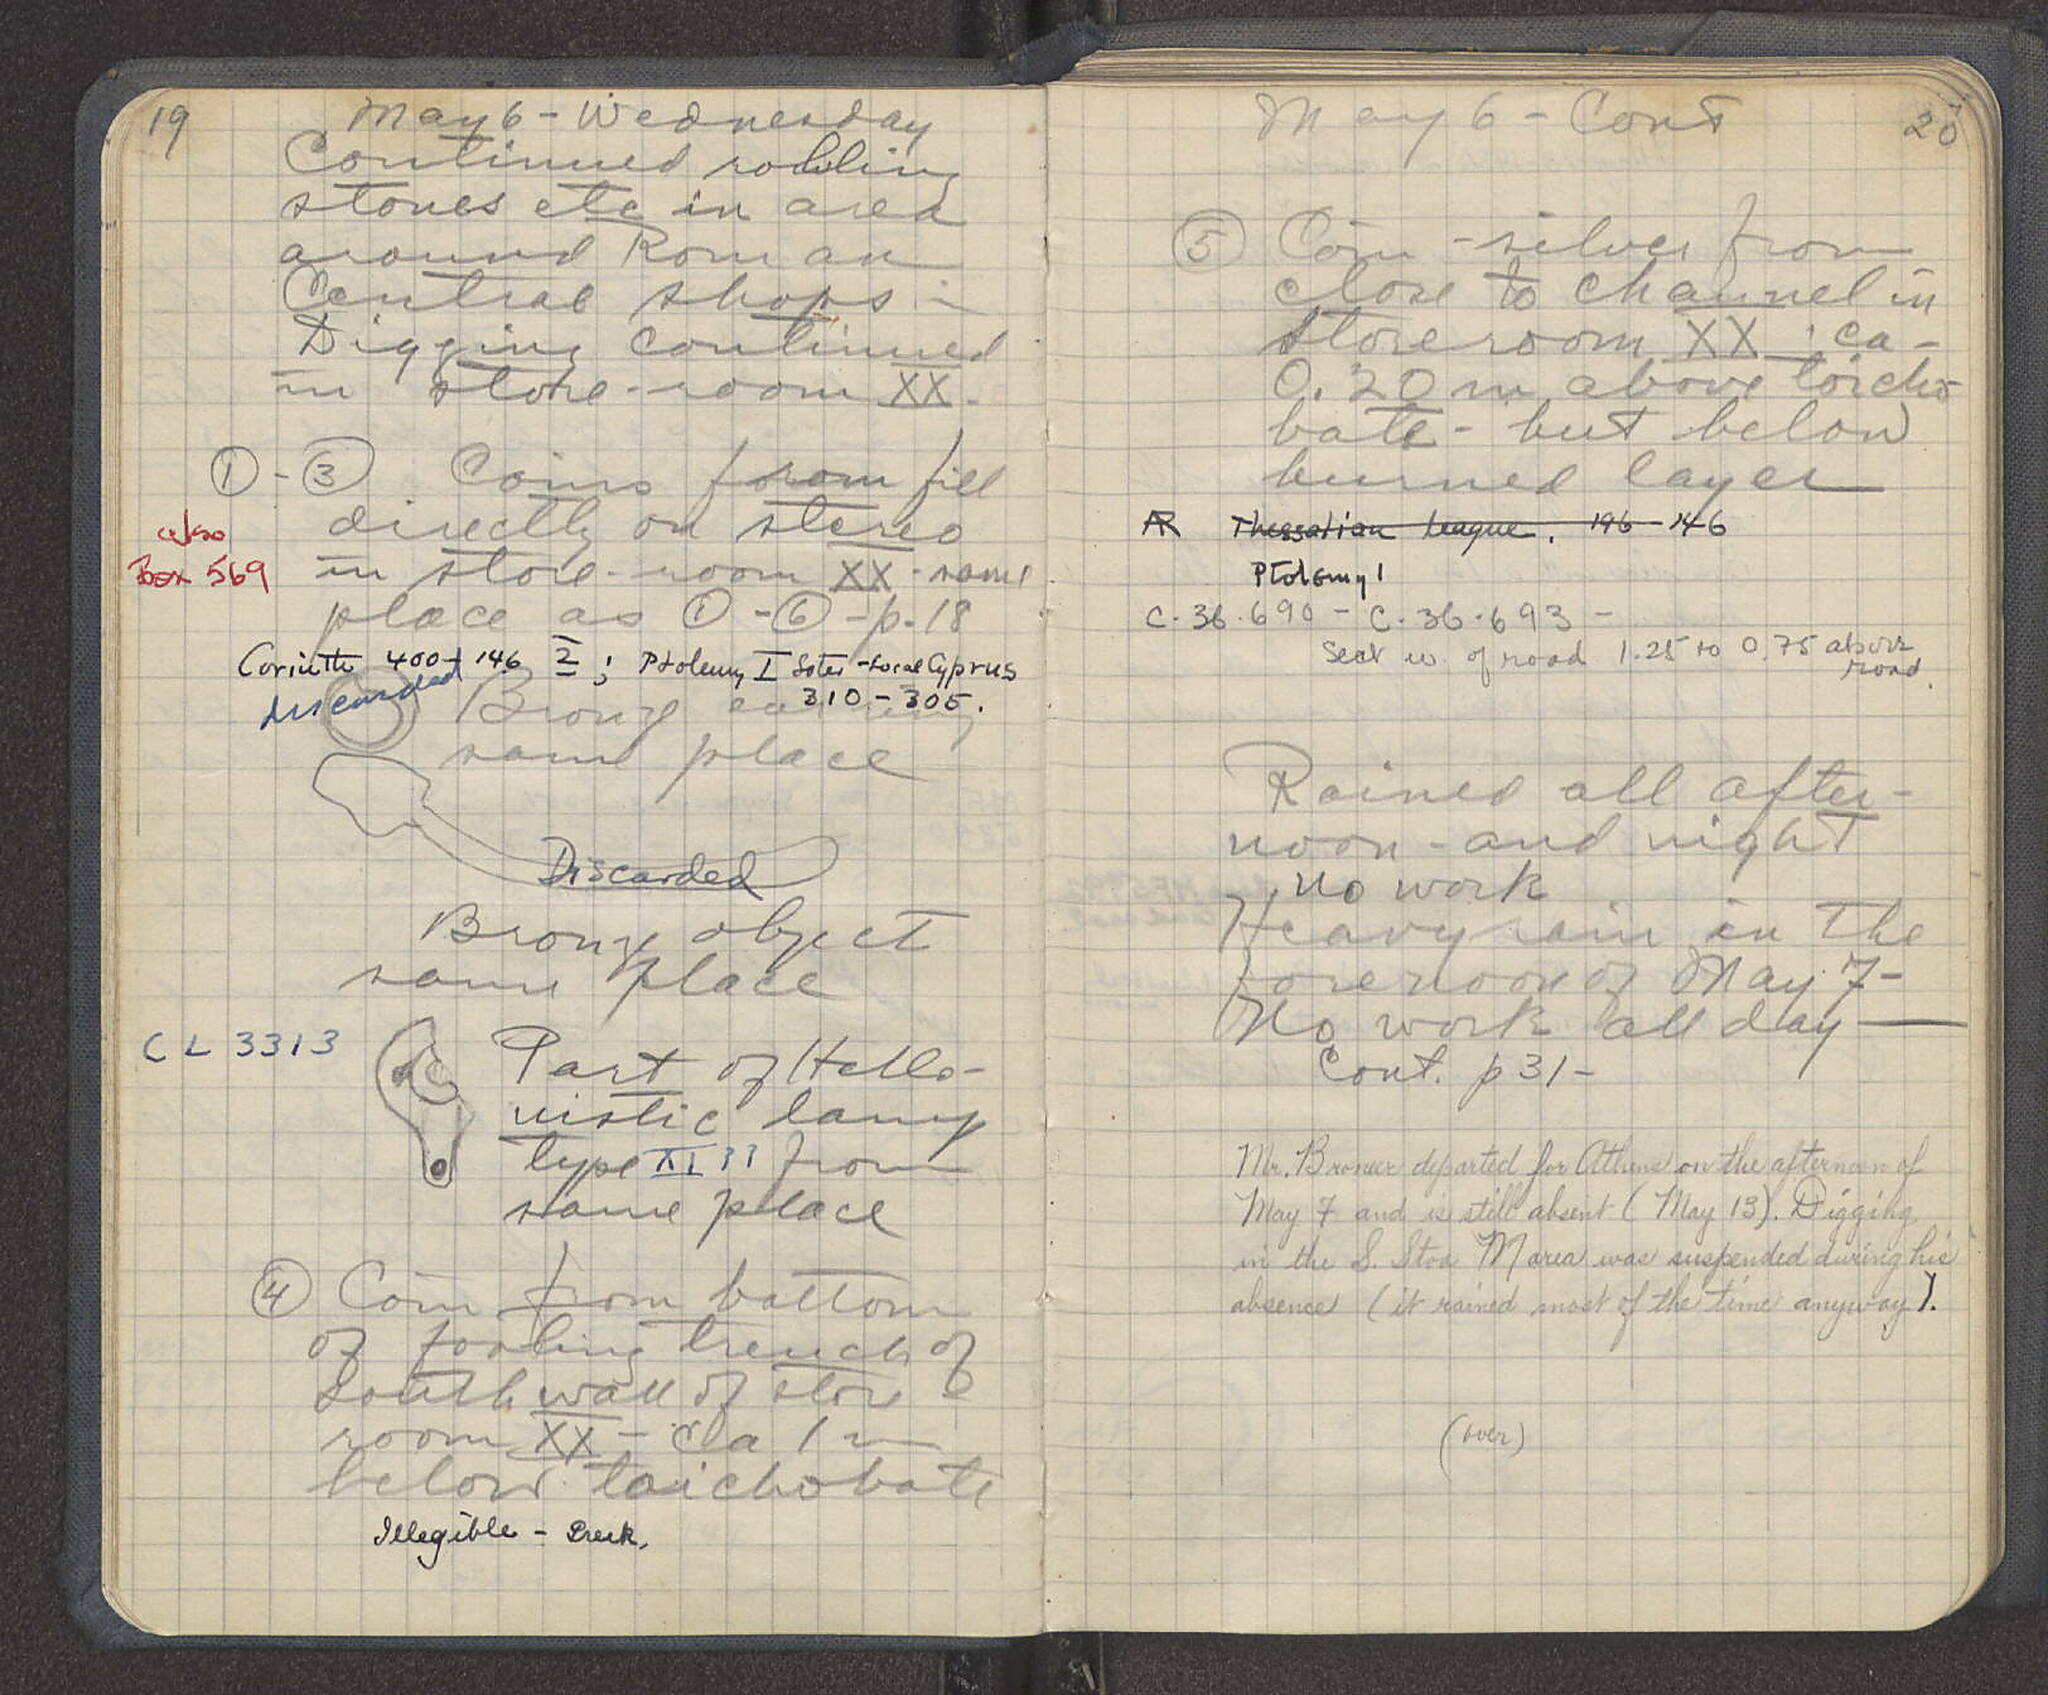 19
May 6 - Wednesday
Continued rolling
stones etc in area
around Roman
Central shops -
Digging continued
in store-room XX.
① - ③ Coins from fill
directly on stereo
in store-room XX - same
place as ① - ⑥ - p. 18
also
Box 569
Corinth 400-146 2 ; Ptolemy I Soter - Local Cyprus
310 - 305.
discarded
Bronze earring
same place
Discarded
Bronze object
same place
CL 3313
Part of Helle-
nistic lamp
type XI ?? from
same place
④ Coin from bottom
of footing trench of
south wall of store
room XX - ca 1 m
below toichobate
Illegible - Greek.
May 6 - Cont
20
⑤ Coin - silver from
close to channel in
storeroom XX ; ca -
0.20 m above toicho-
bate - but below
burned layer
AR Thessalian League. 196-146
Ptolemy I
C.36.690 - C.36.693 -
Sect w. of road 1.25 to 0.75 above
road.
Rained all after-
noon - and night
No work
Heavy rain in the
forenoon of May 7 -
No work all day —
Cont. p 31 -
Mr. Broneer departed for Athens on the afternoon of
May 7 and is still absent (May 13). Digging
in the S. Stoa M area was suspended during his
absence (it rained most of the time anyway).
(over)